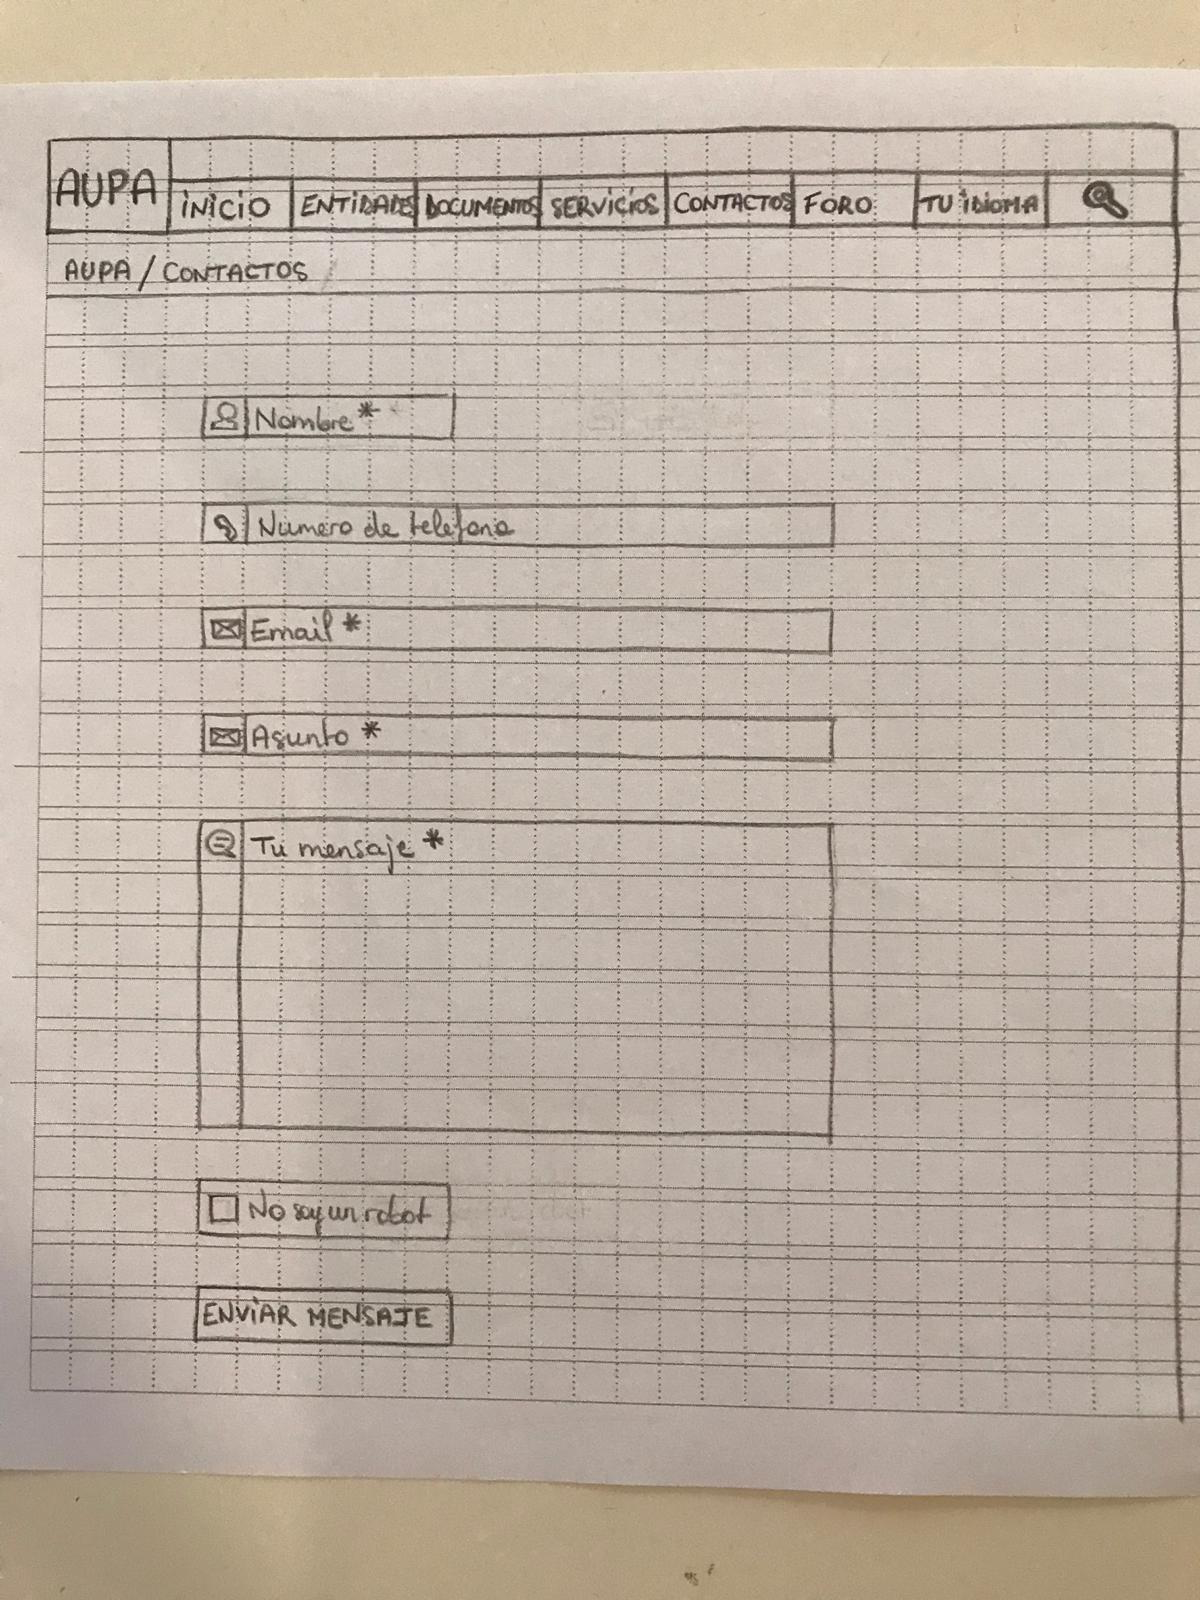 AUPA
INICIO ENTIDADES DOCUMENTOS SERVICIOS CONTACTOS FORO TU IDIOMA
AUPA / CONTACTOS
Nombre *
Número de teléfono
Email *
Asunto *
Tu mensaje *
No soy un robot
ENVIAR MENSAJE